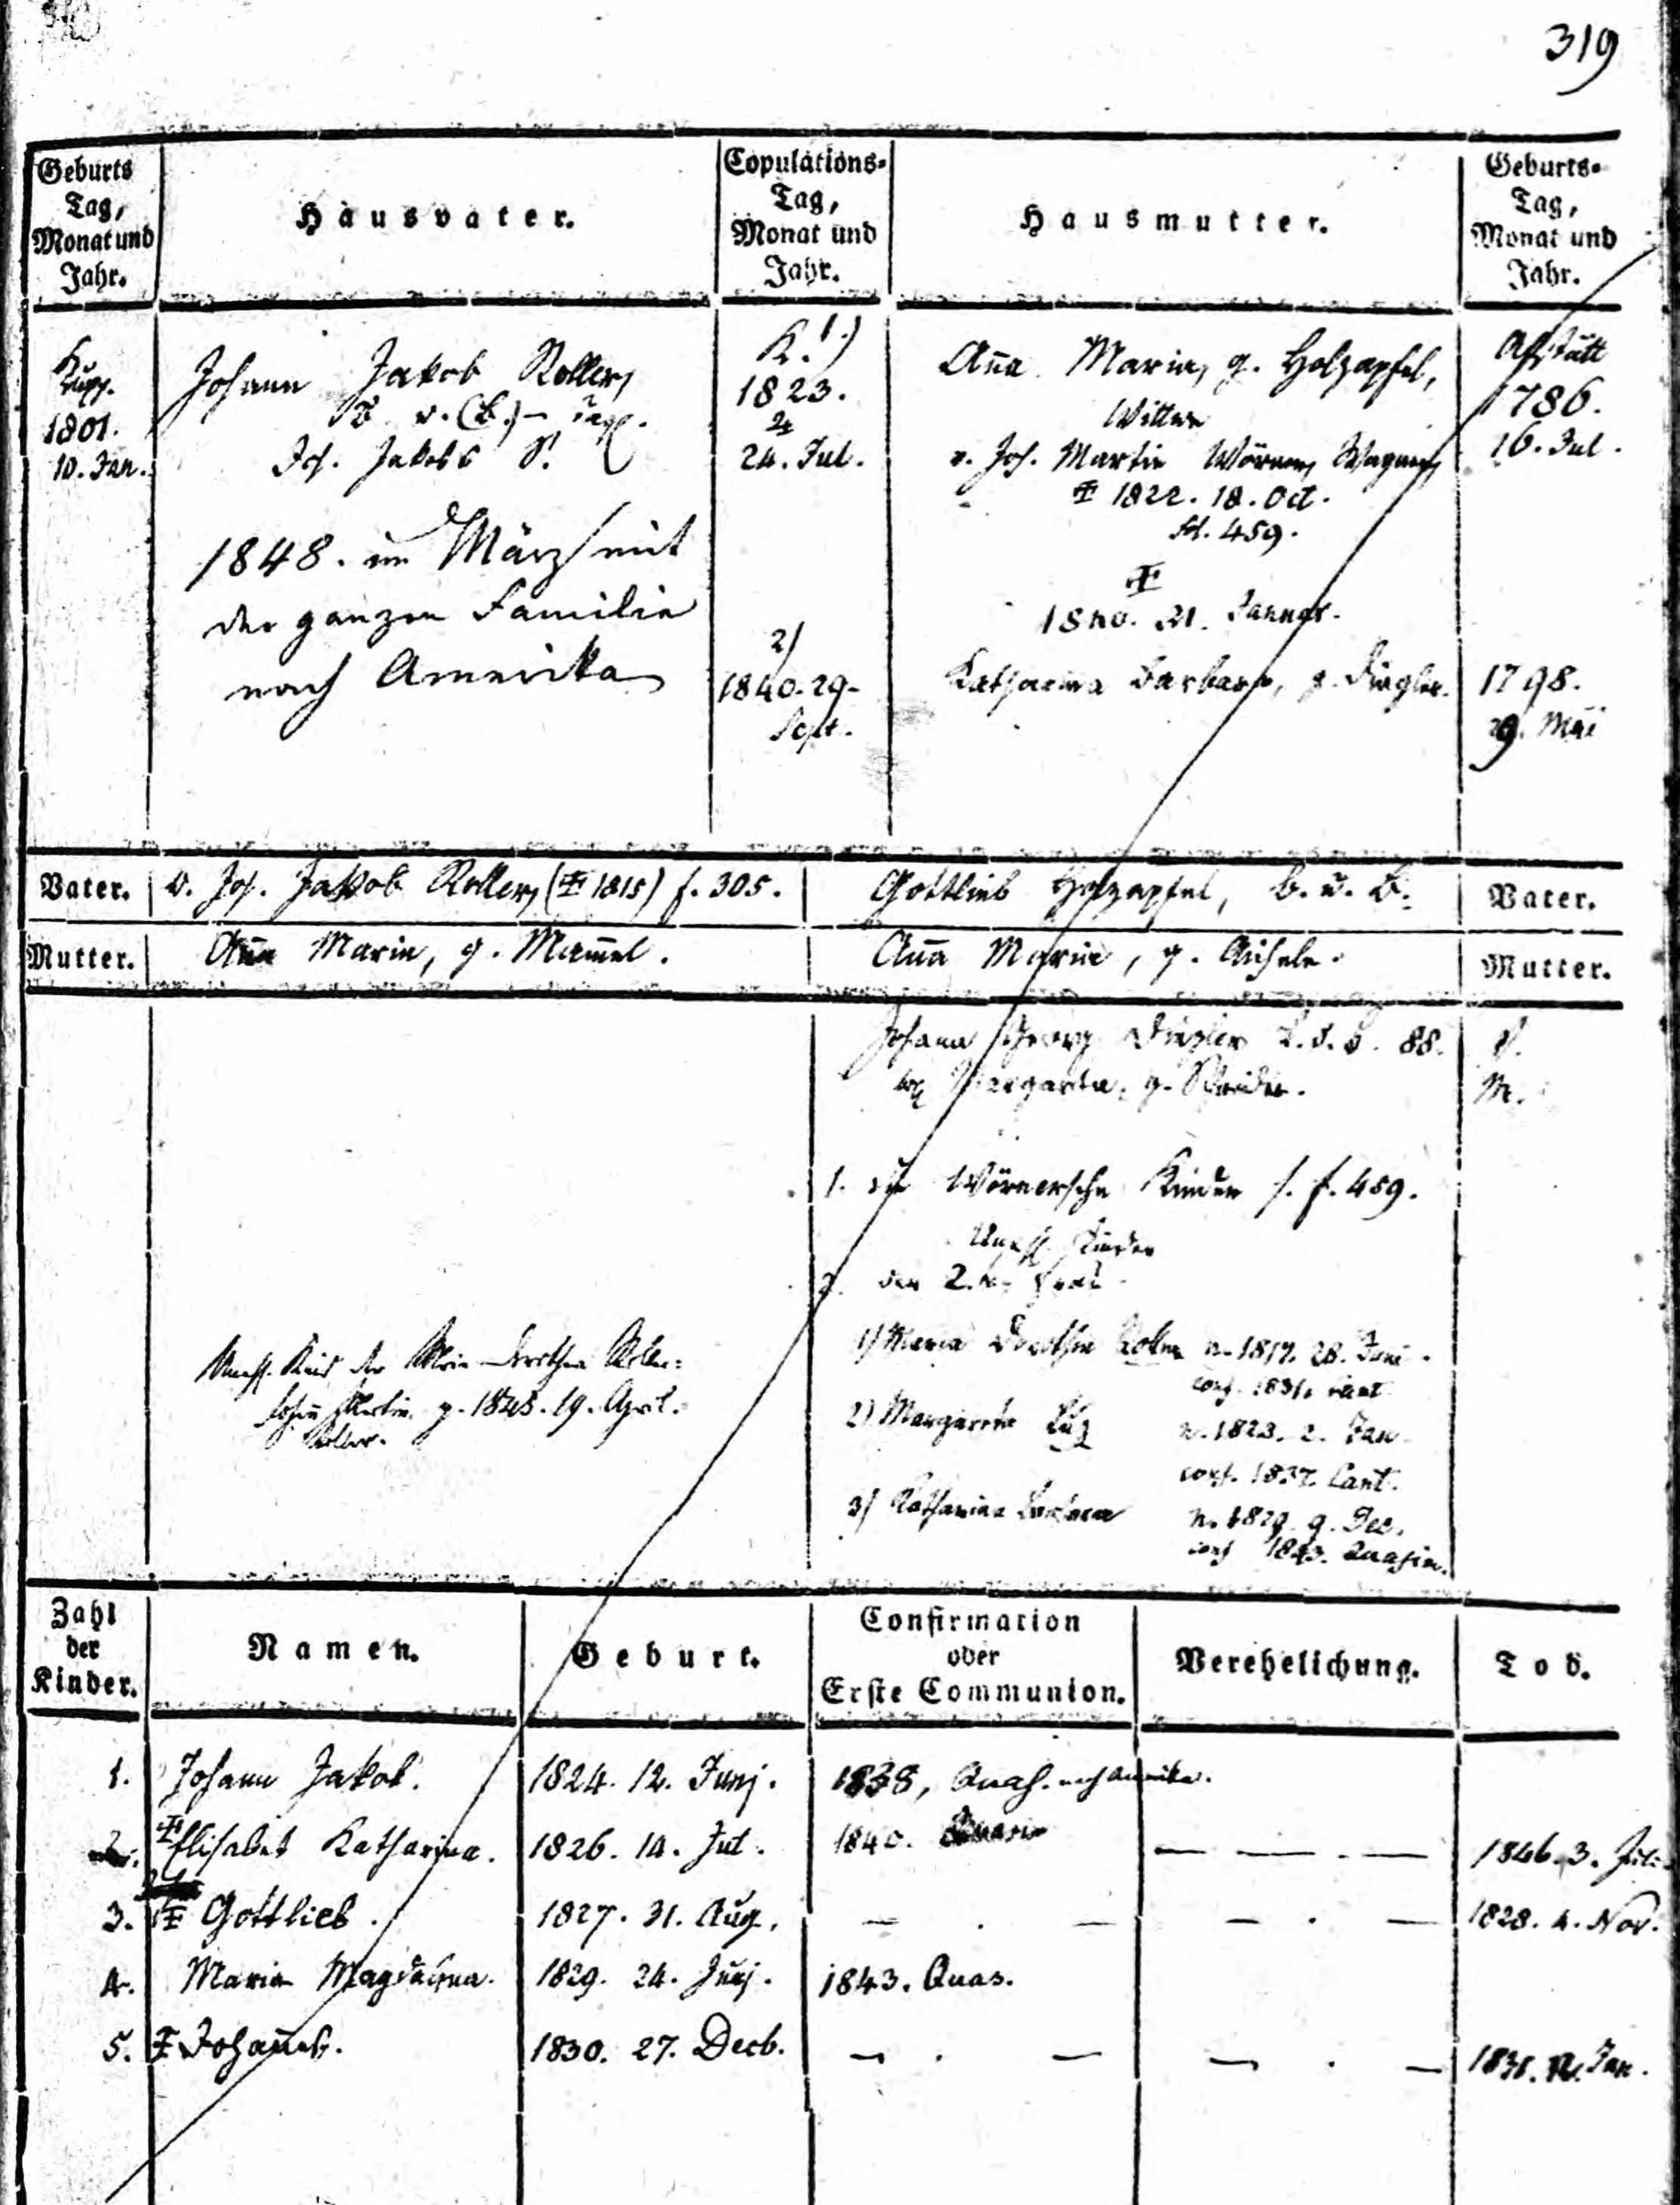 319
Geburts Tag, Monat und Jahr.
Hausvater.
Copulations-Tag, Monat und Jahr.
Hausmutter.
Geburts-Tag, Monat und Jahr.
K.
1801.
10. Jan.
Johann Jakob Roller,
Joh. Jakobs S.
1848. im März mit
der ganzen Familie
nach Amerika
K. 1.)
1823.
24. Jul.
2)
1840. 29.
Sept.
Aña Maria, g. Holzapfel,
Wittwe
v. Joh. Martin Wörner, Wagner,
1822. 18. Oct.
fol. 459.
1840. 21. Januar.
Katharina Barbara, g. Ziegler.
Affstätt
1786.
16. Jul.
1798.
29. Mai
Vater.
v. Joh. Jakob Roller, (1815) f. 305.
Gottlieb Holzapfel, B. u. B.
Vater.
Mutter.
Aña Maria, g. Mam̄el.
Aña Maria, g. Aichele.
Mutter.
Johann Georg Ziegler 88. V.
Margareta, g. M.
1. die Wörnersche Kinder s. f. 459.
Unehl. Kinder
2. der 2.
1) Maria Dorothea n. 1817. 28. Juni.
conf. 1831. Cant.
2) Margareta Luz n. 1823. 2. Jan.
conf. 1837. Cant.
3) Katharina Barbara n. 1829. 9. Dec.
conf 1843. Quasim.
Unehl. Kind der Maria Dorothea
Martin g. 1843. 19. April.
Roller.
Zahl der Kinder.
Namen.
Geburt.
Confirmation oder Erste Communion.
Verehelichung.
Tod.
1. Johann Jakob. 1824. 12. Junj. 1838, Quas. nach Amerika.
2. Elisabet Katharina. 1826. 14. Jul. 1840. — — . — 1846. 3. Juli
3. Gottlieb. 1827. 31. Aug. — . — — . — 1828. 4. Nov.
4. Maria Magdalena. 1829. 24. Junj. 1843. Quas.
5. Johañes. 1830. 27. Decb. — . — — . — 1831. 12. Jan.